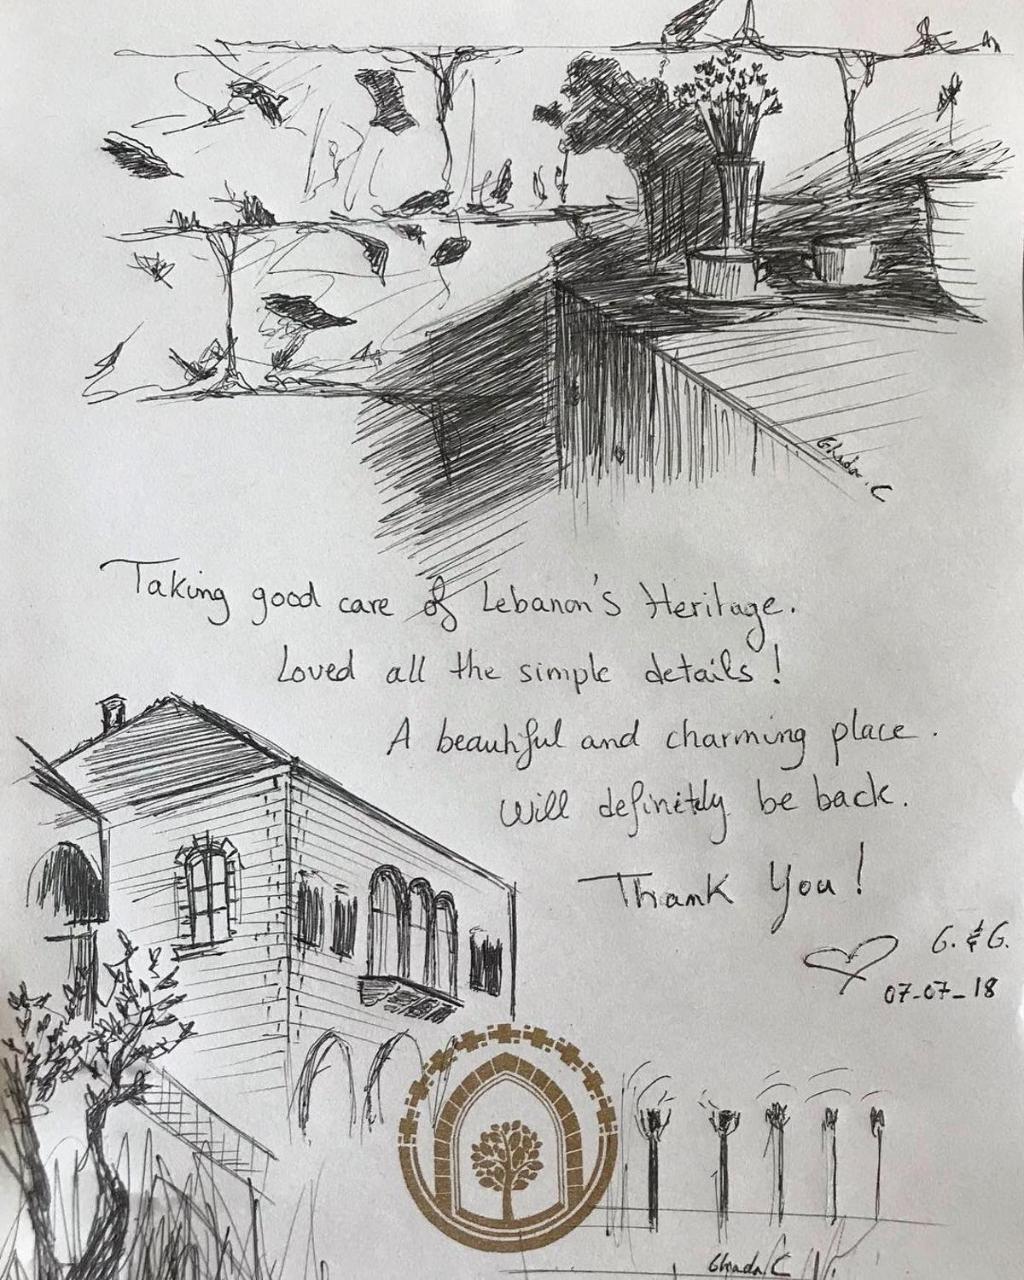 Ghada. C
Taking good care of Lebanon's Heritage.
Loved all the simple details!
A beautiful and charming place.
Will definitely be back.
Thank You!
G. & G.
07-07-18
Ghada C